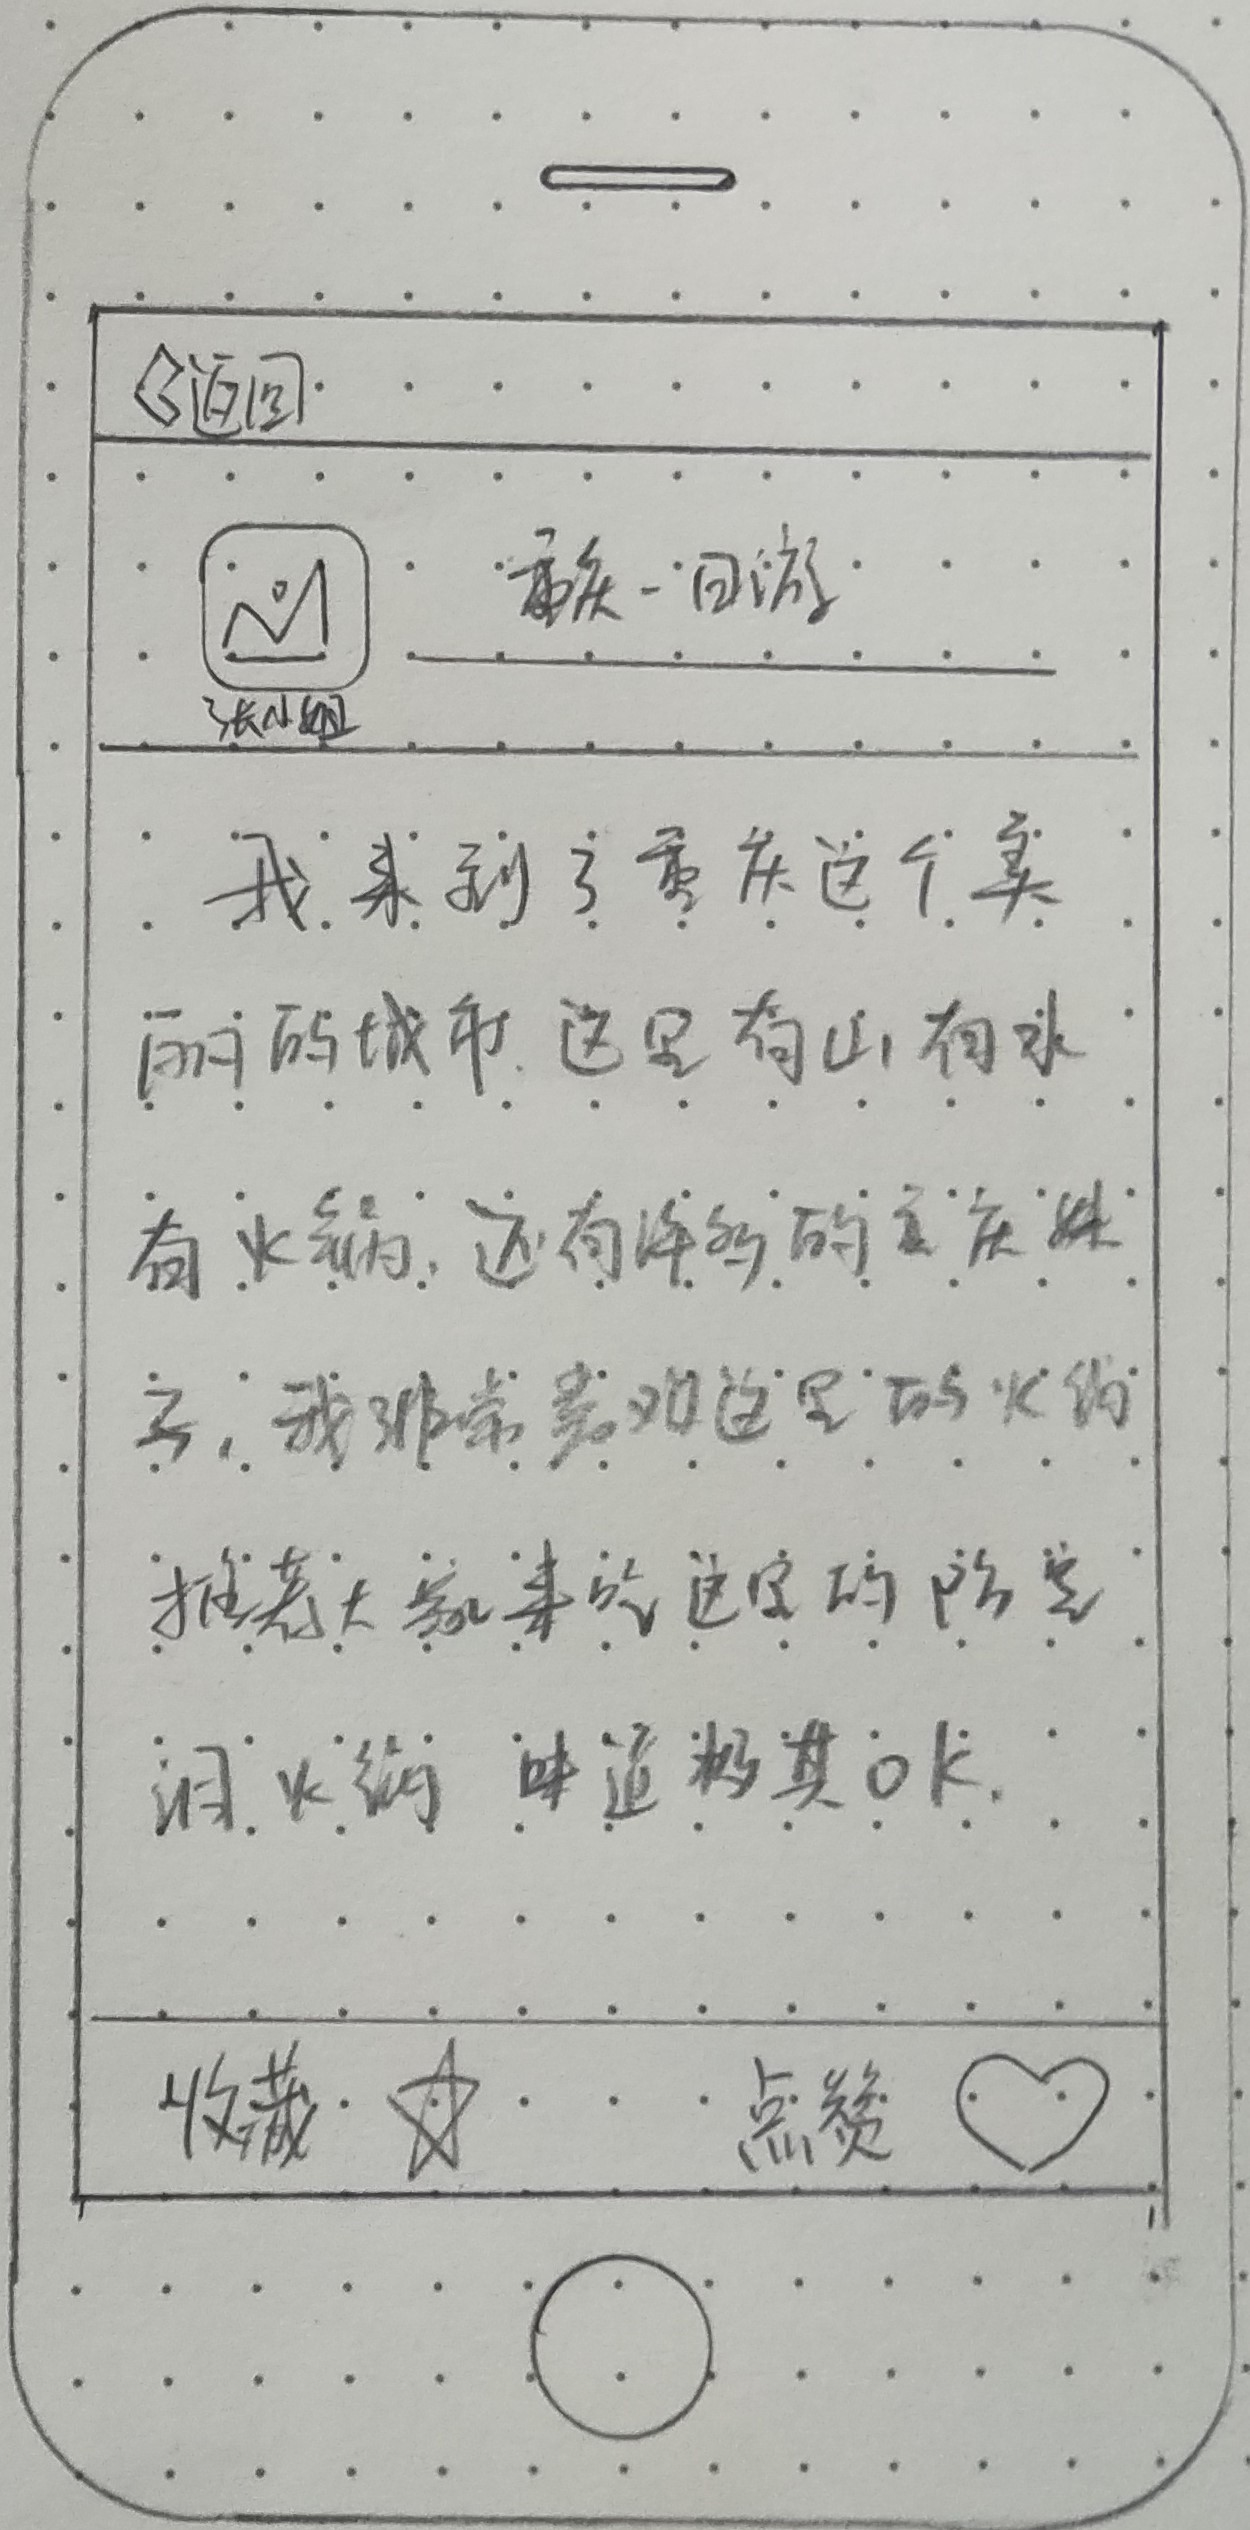 返回
重庆一日游
张小姐
我来到了重庆这个美
丽的城市.这里有山有水
有火锅,还有漂亮的重庆妹
子,我非常喜欢这里的火锅
推荐大家来吃这家的
火锅 味道极其OK.
收藏 点赞